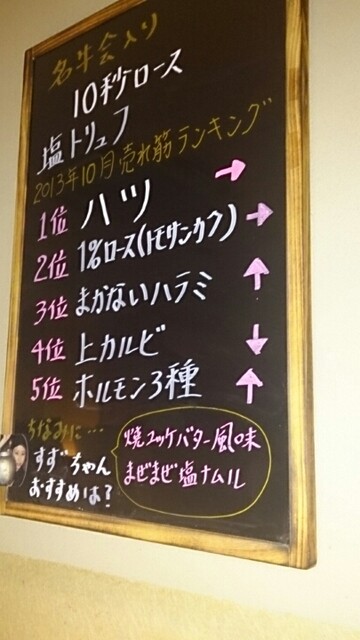 名牛会入り
10秒ロース
塩トリュフ
2013年10月売れ筋ランキング
1位 ハツ →
2位 1%ロース(トモサンカク) →
3位 まかないハラミ ↑
4位 上カルビ ↓
5位 ホルモン3種 ↑
ちなみに…
すずちゃん
おすすめは?
焼ユッケバター風味
まぜまぜ塩ナムル